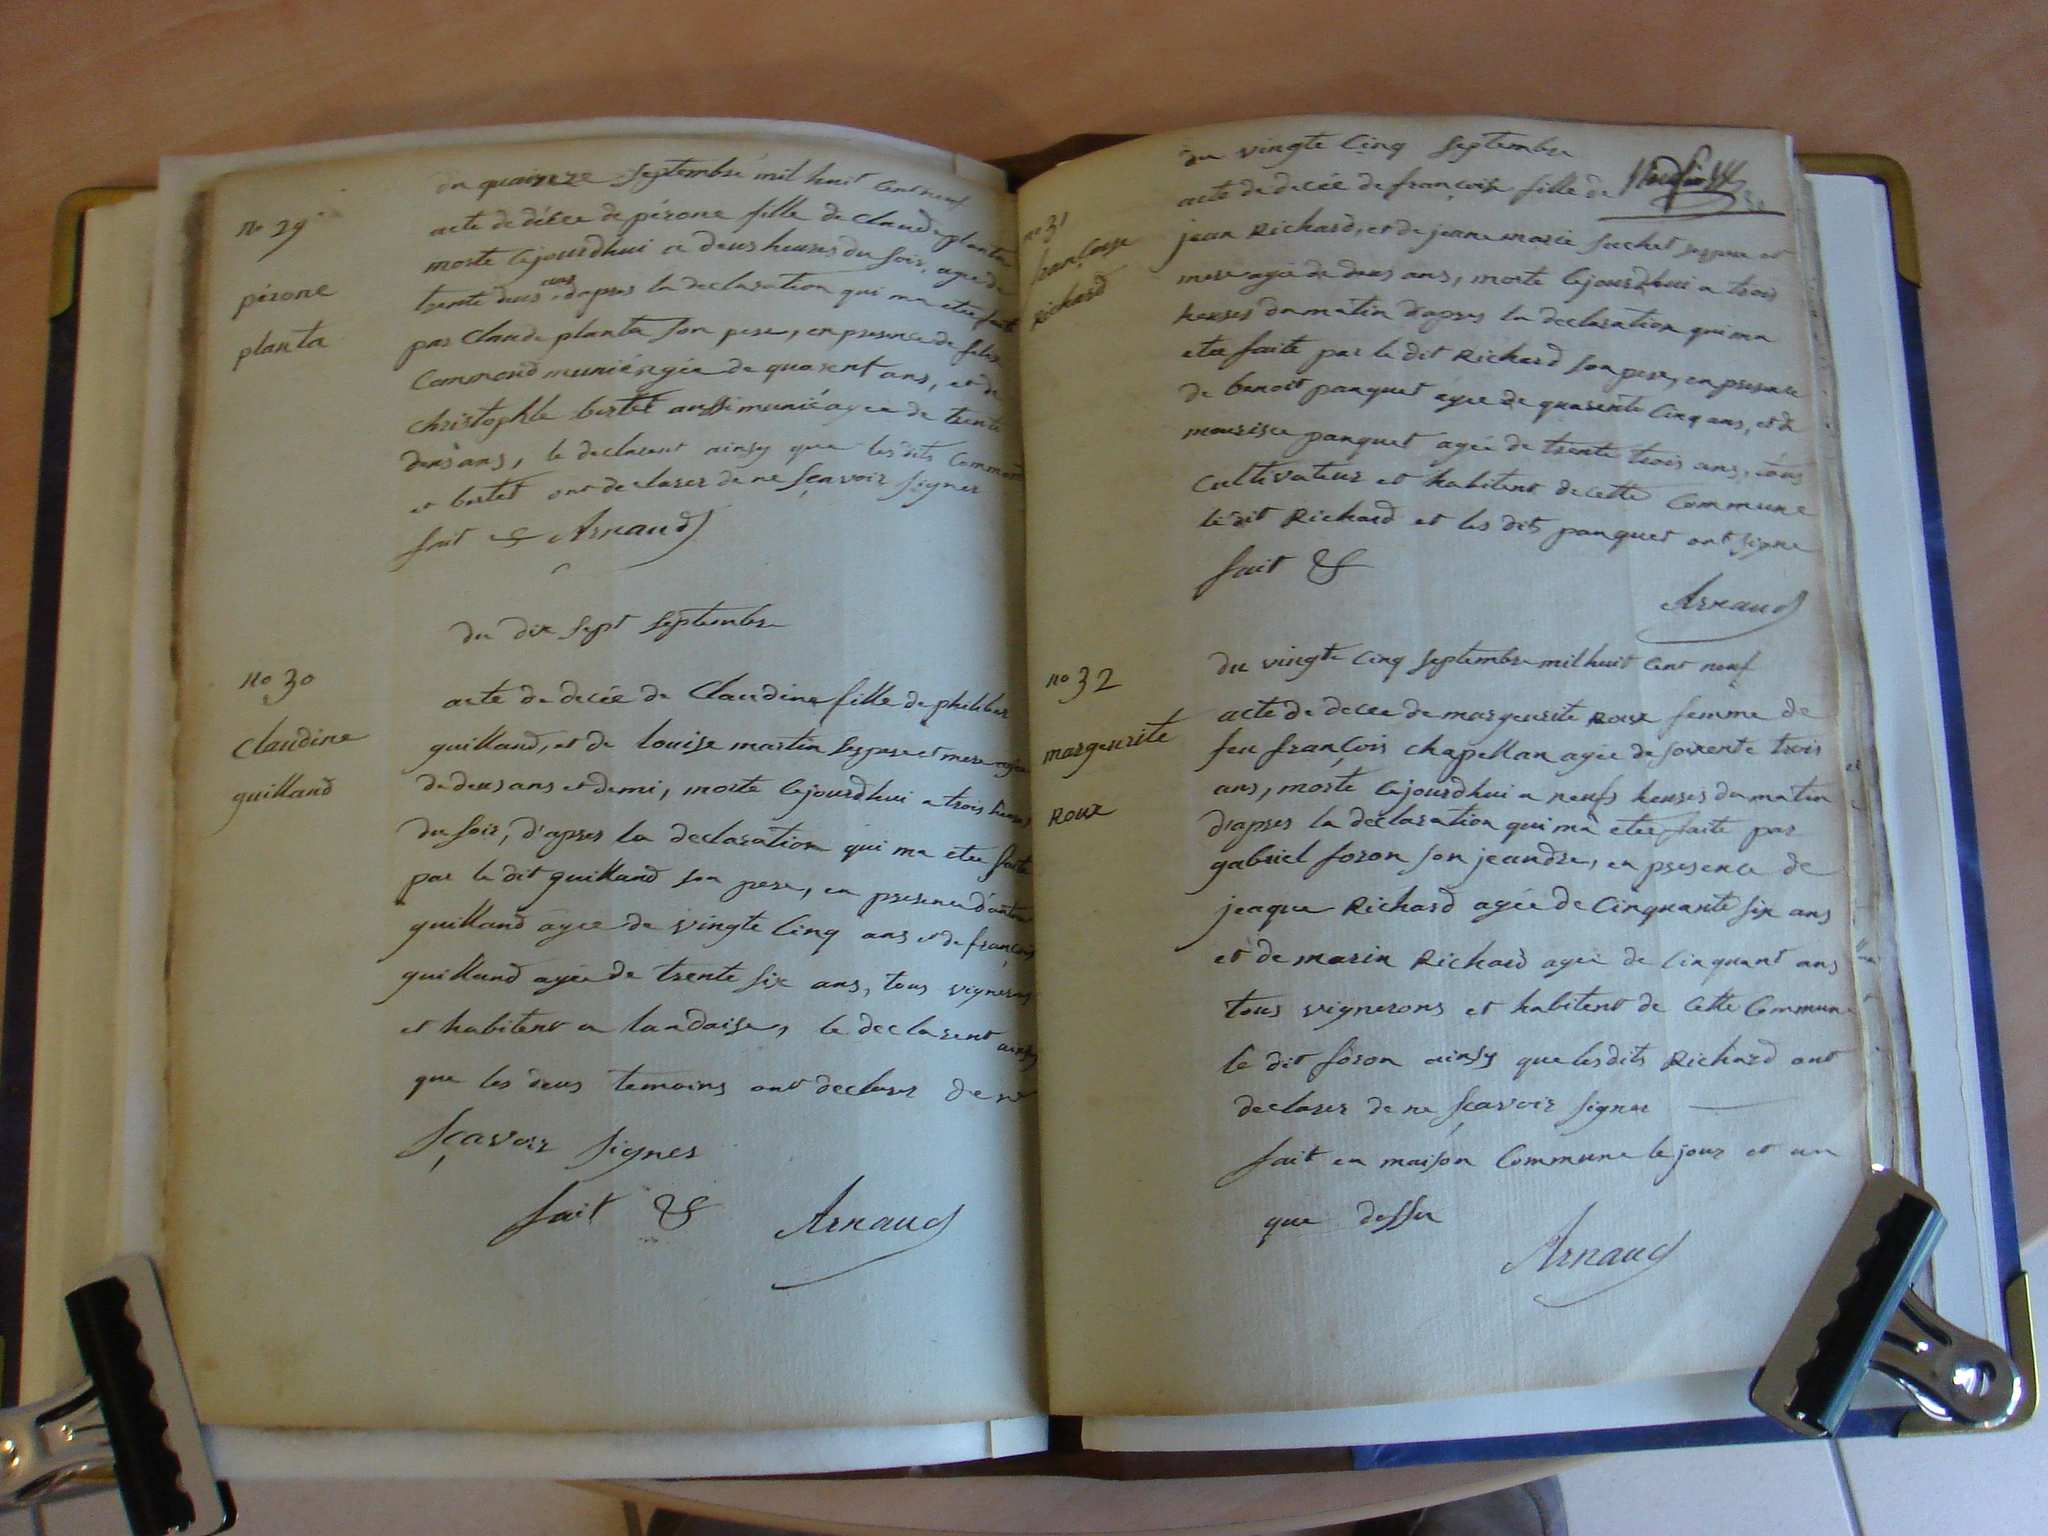 du quainze septembre mil huit cent neuf
no 29
pérone
planta
acte de décée de pérone fille de Claude planta
morte cejourdhui a deus heures du soir, agée de
trente deus ans daprès la declaration qui ma etée fait
par Claude planta son pere, en presence de
Commond munié agée de quarent ans, et de
christophle bertet aussi munié agée de trente
deus ans, le declarent ainsy que les dits Commond
et bertet ont declarer de ne sçavoir signer
fait & Arnaud
du dix sept septembre
no 30
Claudine
guilland
acte de decée de Claudine fille de philiber
guilland, et de louise martin ses pere et mere agée
de deus ans et demi, morte cejourdhui a trois heures
du soir, d'apres la declaration qui ma etée faite
par le dit guilland son pere, en presence d'antoin
guilland agée de vingte cinq ans et de françois
guilland agée de trente six ans, tous vignerons
et habitent a landaise, le declarent ainsy
que les deus temoins ont declarer de ne
sçavoir signer
fait & Arnaud
du vingte cinq septembre
no 31
françoise
Richard
acte de decée de françoise fille de
jean Richard, et de jeane marie suchet ses pere et
mere agée de deus ans, morte cejourdhui a trois
heures du matin d'apres la declaration qui ma
etée faite par le dit Richard son pere, en presence
de benoit panquet agée de quarente cinq ans, et de
mourise panquet agée de trente trois ans, tous
cultivateur et habitent de cette Commune
le dit Richard et les dits panquet ont signe
fait &
Arnaud
du vingte cinq septembre mil huit cent neuf
no 32
marguerite
Roux
acte de decée de marguerite Roux femme de
feu françois chapellan agée de soixente trois
ans, morte cejourdhui a neufs heures du matin
d'apres la declaration qui ma etée faite par
gabriel foron son jeandre, en presence de
jeaque Richard agée de Cinquante six ans
et de marin Richard agée de cinquant ans
tous vignerons et habitent de cette Commune
le dit foron ainsy que lesdits Richard ont
declarer de ne sçavoir signer
fait en maison Commune le jour et an
que dessu
Arnaud